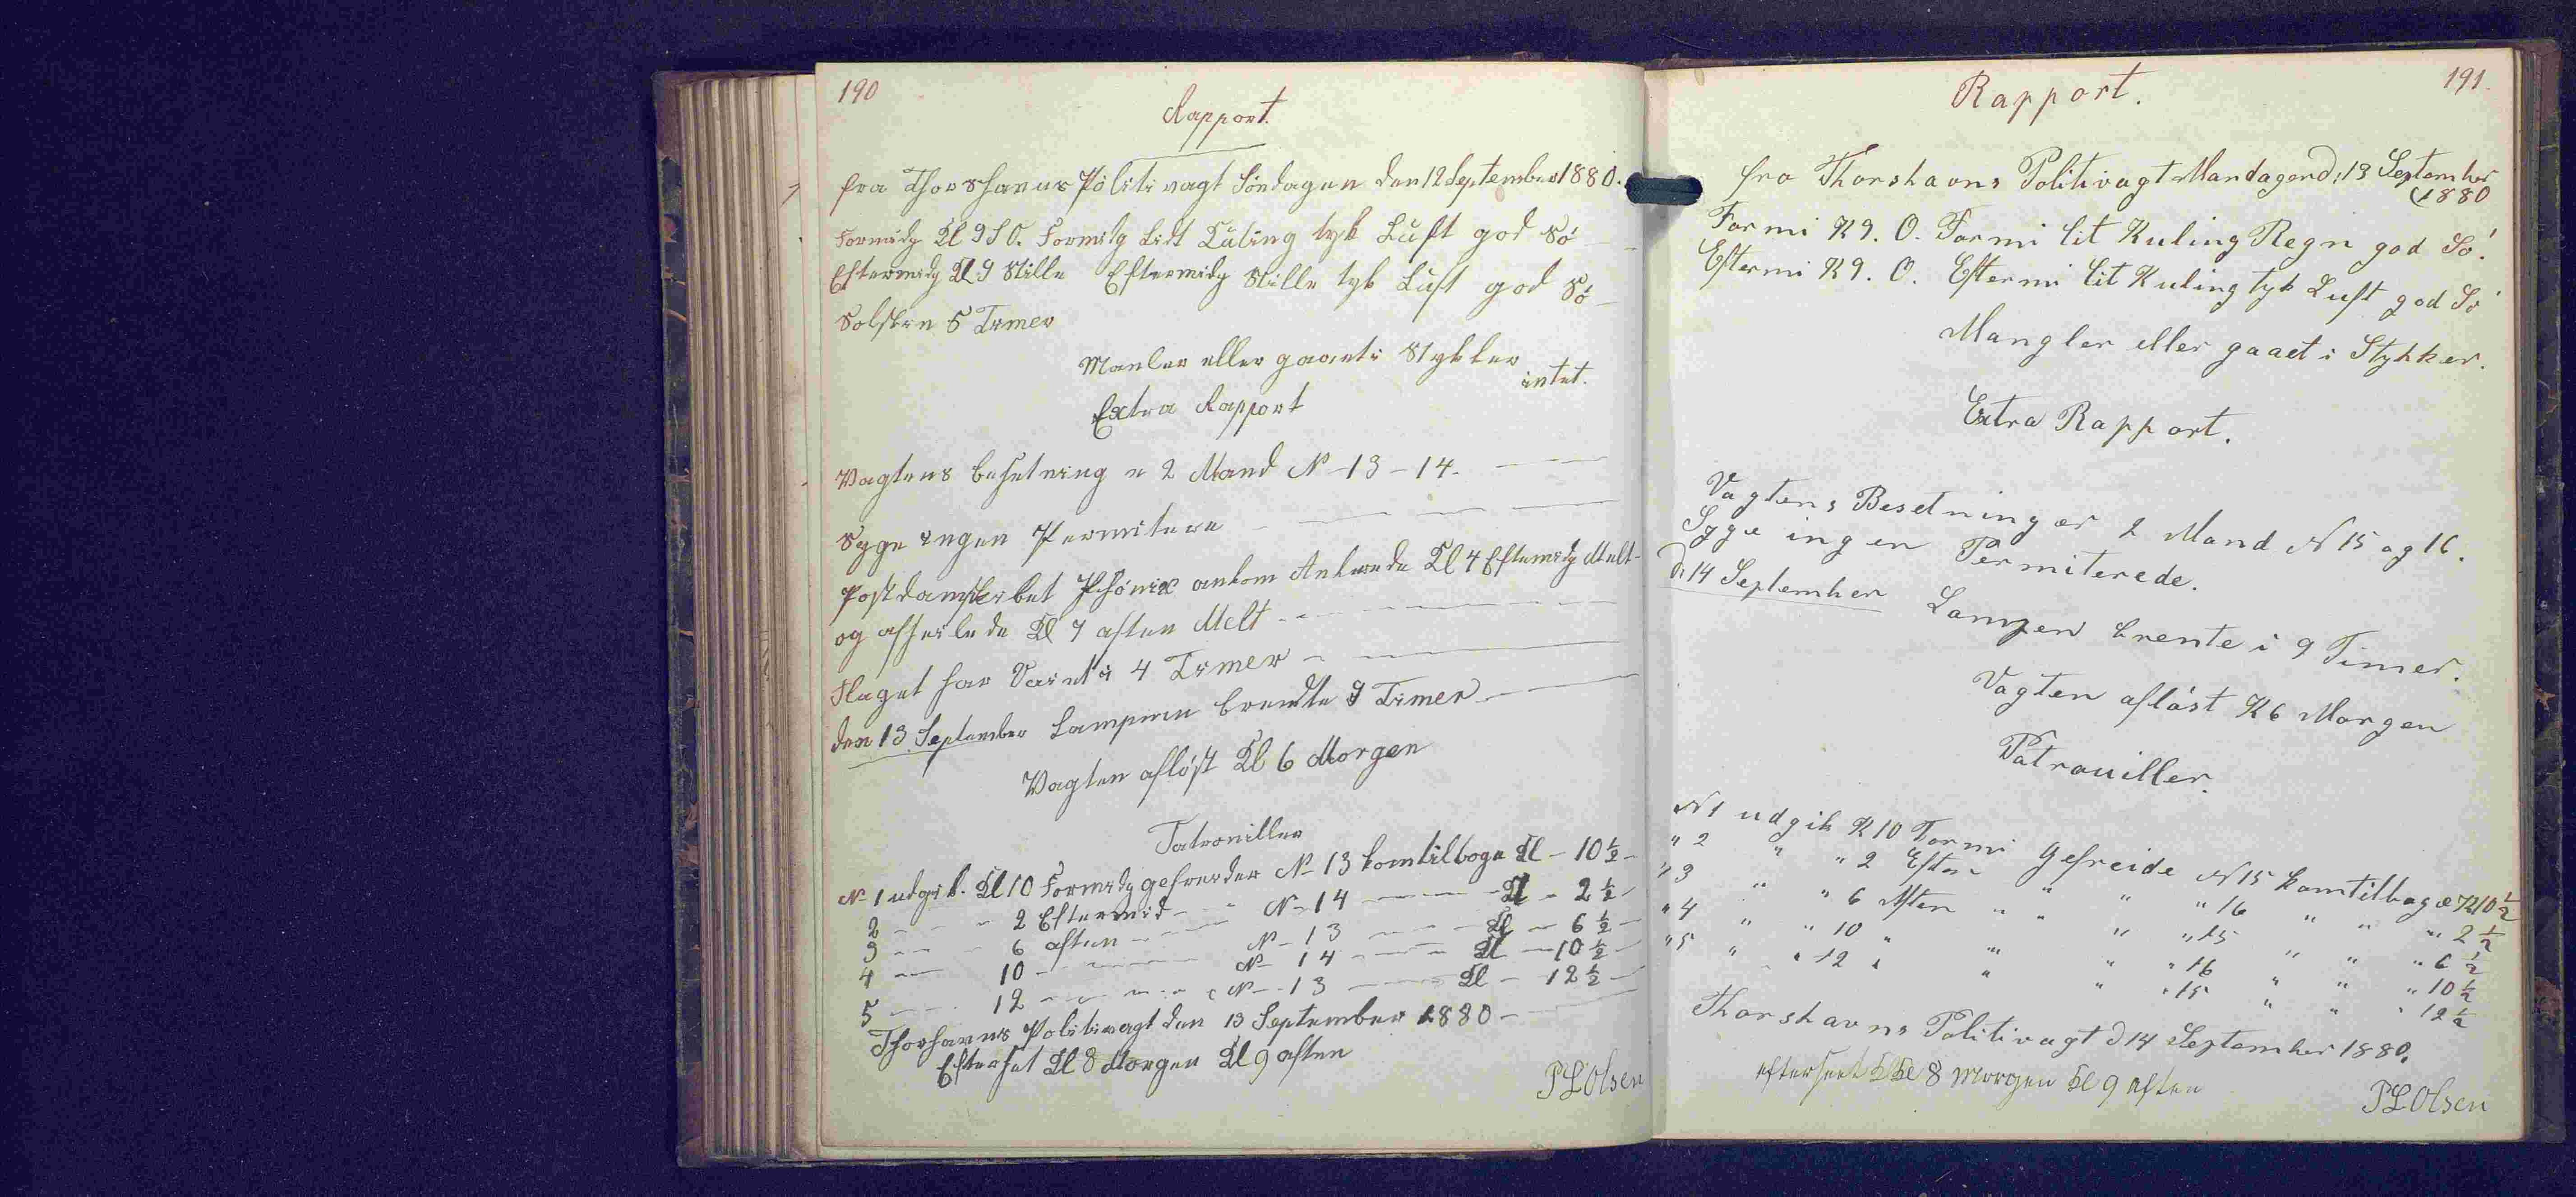 190
Rapport.
fra Thorshavns Politivagt Söndagen den 12 September 1880.
Formidg Kl 9 S O. Formidg Lidt Kuling tyk Luft god Sö
Eftermidg Kl 9 Stille Eftermidg Stille tyk Luft god Sö
Solskin 5 Timer
Manler eller gaaet i Stykker
intet.
Extra Rapport
Vagtens besetning er 2 Mand No 13 - 14.
Syge ingen Permitere
Postdampskibet Phönix ankom Ankrede Kl 4 Eftermidg Melt
og afseilede Kl 7 aften Melt
Flaget har Vaiet i 4 Timer
den 13 September Lampenn brendte 9 Timer
Vagten aflöst Kl 6 Morgen
Patrouiller
No 1 udgik. Kl 10 Formidg gefreider No 13 kom tilbage Kl - 10 ½
2 - - - 2 Eftermid - - No 14 - - Kl - 2 ½
3 - - - 6 aften - - No 13 - - Kl - 6 ½
4 - - 10 - - - No 14 - - Kl - 10 ½
5 - - 12 - - - No 13 - - Kl - 12 ½
Thorhavns Politivagt den 13 September 1880
Efterset Kl 8 Morgen Kl 9 aften
PLOlsen
191.
Rapport.
fra Thorshavns Politivagt Mandagen d: 13 September
1880
Formi K 9. O. Formi lit Kuling Regn god Sö.
Eftermi K 9. O. Eftermi lit Kuling tyk Luft god Sö
Mangler eller gaaet i Stykker.
Extra Rapport.
Vagtens Besetning er 2 Mand N 15 og 16.
Syge ingen Permiterede.
d: 14 September Lampen brente i 9 Timer.
Vagten aflöst K 6 Morgen
Patrouiller.
N 1 udgik K 10 Formi Gefreide N 15 kom tilbage K 10 ½
" 2 " " 2 Efterm " " " 16 " " " 2 ½
" 3 " " 6 Aften " " " 15 " " " 6 ½
" 4 " " 10 " " " " 16 " " " 10 ½
" 5 " " 12 " " " " 15 " " " 12 ½
Thorshavns Politivagt d 14 September 1880.
efterseet Kl 8 Morgen Kl 9 aften
PLOlsen